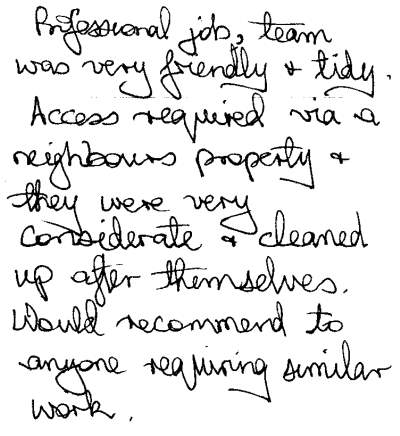 Professional job, team
was very friendly + tidy.
Access required via a
neighbours property +
they were very
considerate + cleaned
up after themselves.
Would recommend to
anyone requiring similar
work.